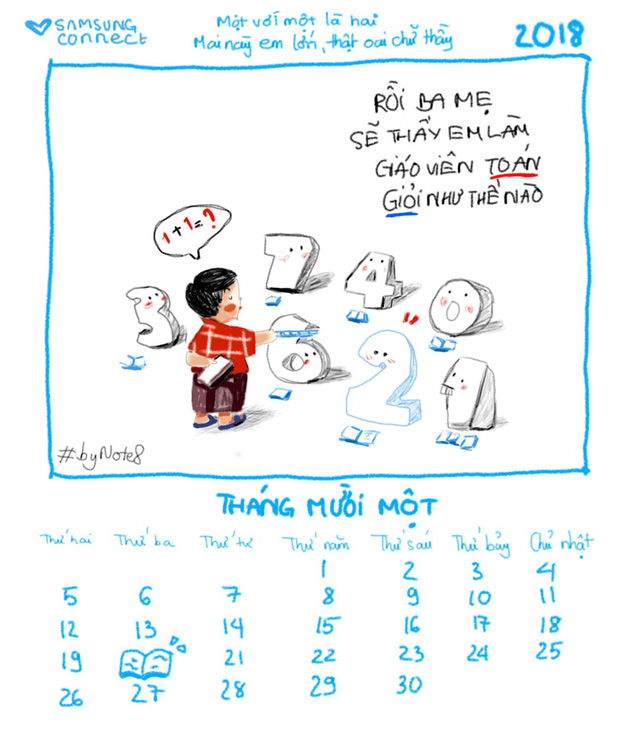 SAMSUNG
connect
Một với một là hai
Mai này em lớn, thật oai chứ thầy
2018
RỒI BA MẸ
SẼ THẤY EM LÀM
GIÁO VIÊN TOÁN
GIỎI NHƯ THẾ NÀO
1+1=?
3 7 4 0
6 2 1
#byNote8
THÁNG MƯỜI MỘT
Thứ hai Thứ ba Thứ tư Thứ năm Thứ sáu Thứ bảy Chủ nhật
1 2 3 4
5 6 7 8 9 10 11
12 13 14 15 16 17 18
19 21 22 23 24 25
26 27 28 29 30